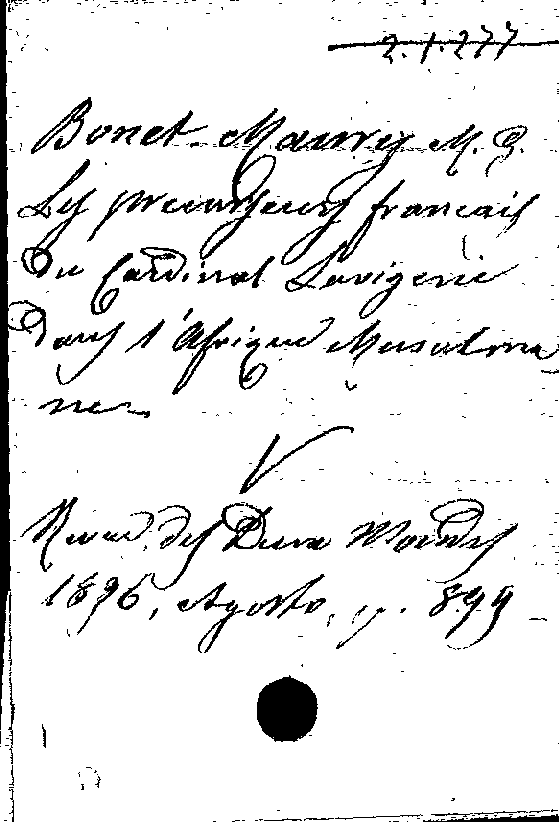 2.1.277
Bonet-Maury M. G.
Les precurseurs français
du Cardinal Lavigerie
dans l'Afrique Musulma
ne.
Revue des Deux Mondes
1896, Agosto, p. 899